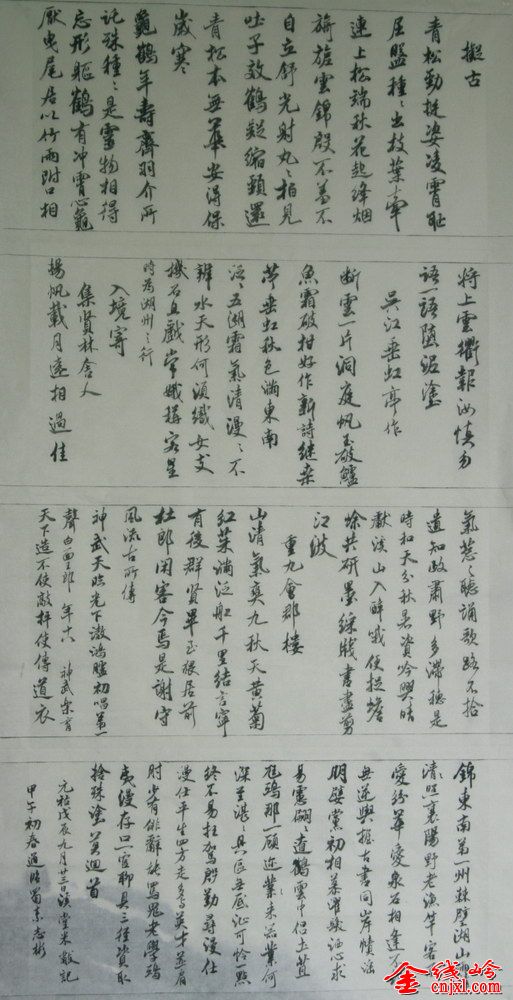 擬古
青松勁挺姿凌霄耻
屈盤種々出枝葉牽
連上松端秋花起絳烟
旖旎雲錦殷不羞不
自立舒光射丸々栢見
吐子效鶴疑縮頸還
青松本無華安得保
歲寒
龜鶴年壽齊羽介所
託殊種々是靈物相得
忘形軀鶴有冲霄心龜
厭曳尾居以竹兩附口相
將上雲衢報汝慎勿
語一語墮泥塗
吳江垂虹亭作
斷雲一片洞庭帆玉破鱸
魚霜破柑好作新詩繼桑
苧垂虹秋色滿東南
泛々五湖霜氣清漫々不
辨水天形何須織女支
機石且戲常娥稱客星
時為湖州之行
入境寄
集賢林舍人
揚帆載月遠相過佳
氣葱々聽誦歌路不拾
遺知政肅野多滯穗是
時和天分秋暑資吟興晴
獻溪山入醉哦便捉蟾
蜍共研墨綵牋書盡剪
江波
重九會郡樓
山清氣爽九秋天黃菊
紅茱滿泛船千里結言寧
有後群賢畢至猥居前
杜郎閑客今焉是謝守
風流古所傳
神武天臨光下澈鴻臚初唱第一
聲白面玉郎年十八神武樂育
天下造不使敲抨使傳道衣
錦東南第一州棘璧湖山
清照襄陽野老漁竿客
愛紛華愛泉石相逢不
無逆與握古書同岸幘淫
朋嬖黨初相慕濯髮洒心求
易慮翩々遼鶴雲中侶土苴
尪鴟那一顧迩業何
深至湛々具區無底沚可憐點
終不易枉駕殷勤尋漫仕
漫仕平生四方走多與英才並肩
肘少有俳辭能罵鬼老學鴟
夷漫存一官聊具三徑資取
捨殊塗莫迴首
元祐戊辰九月廿三日溪堂米黻記
甲午初春臨蜀素志彬
金线岭
www.cnjxl.com